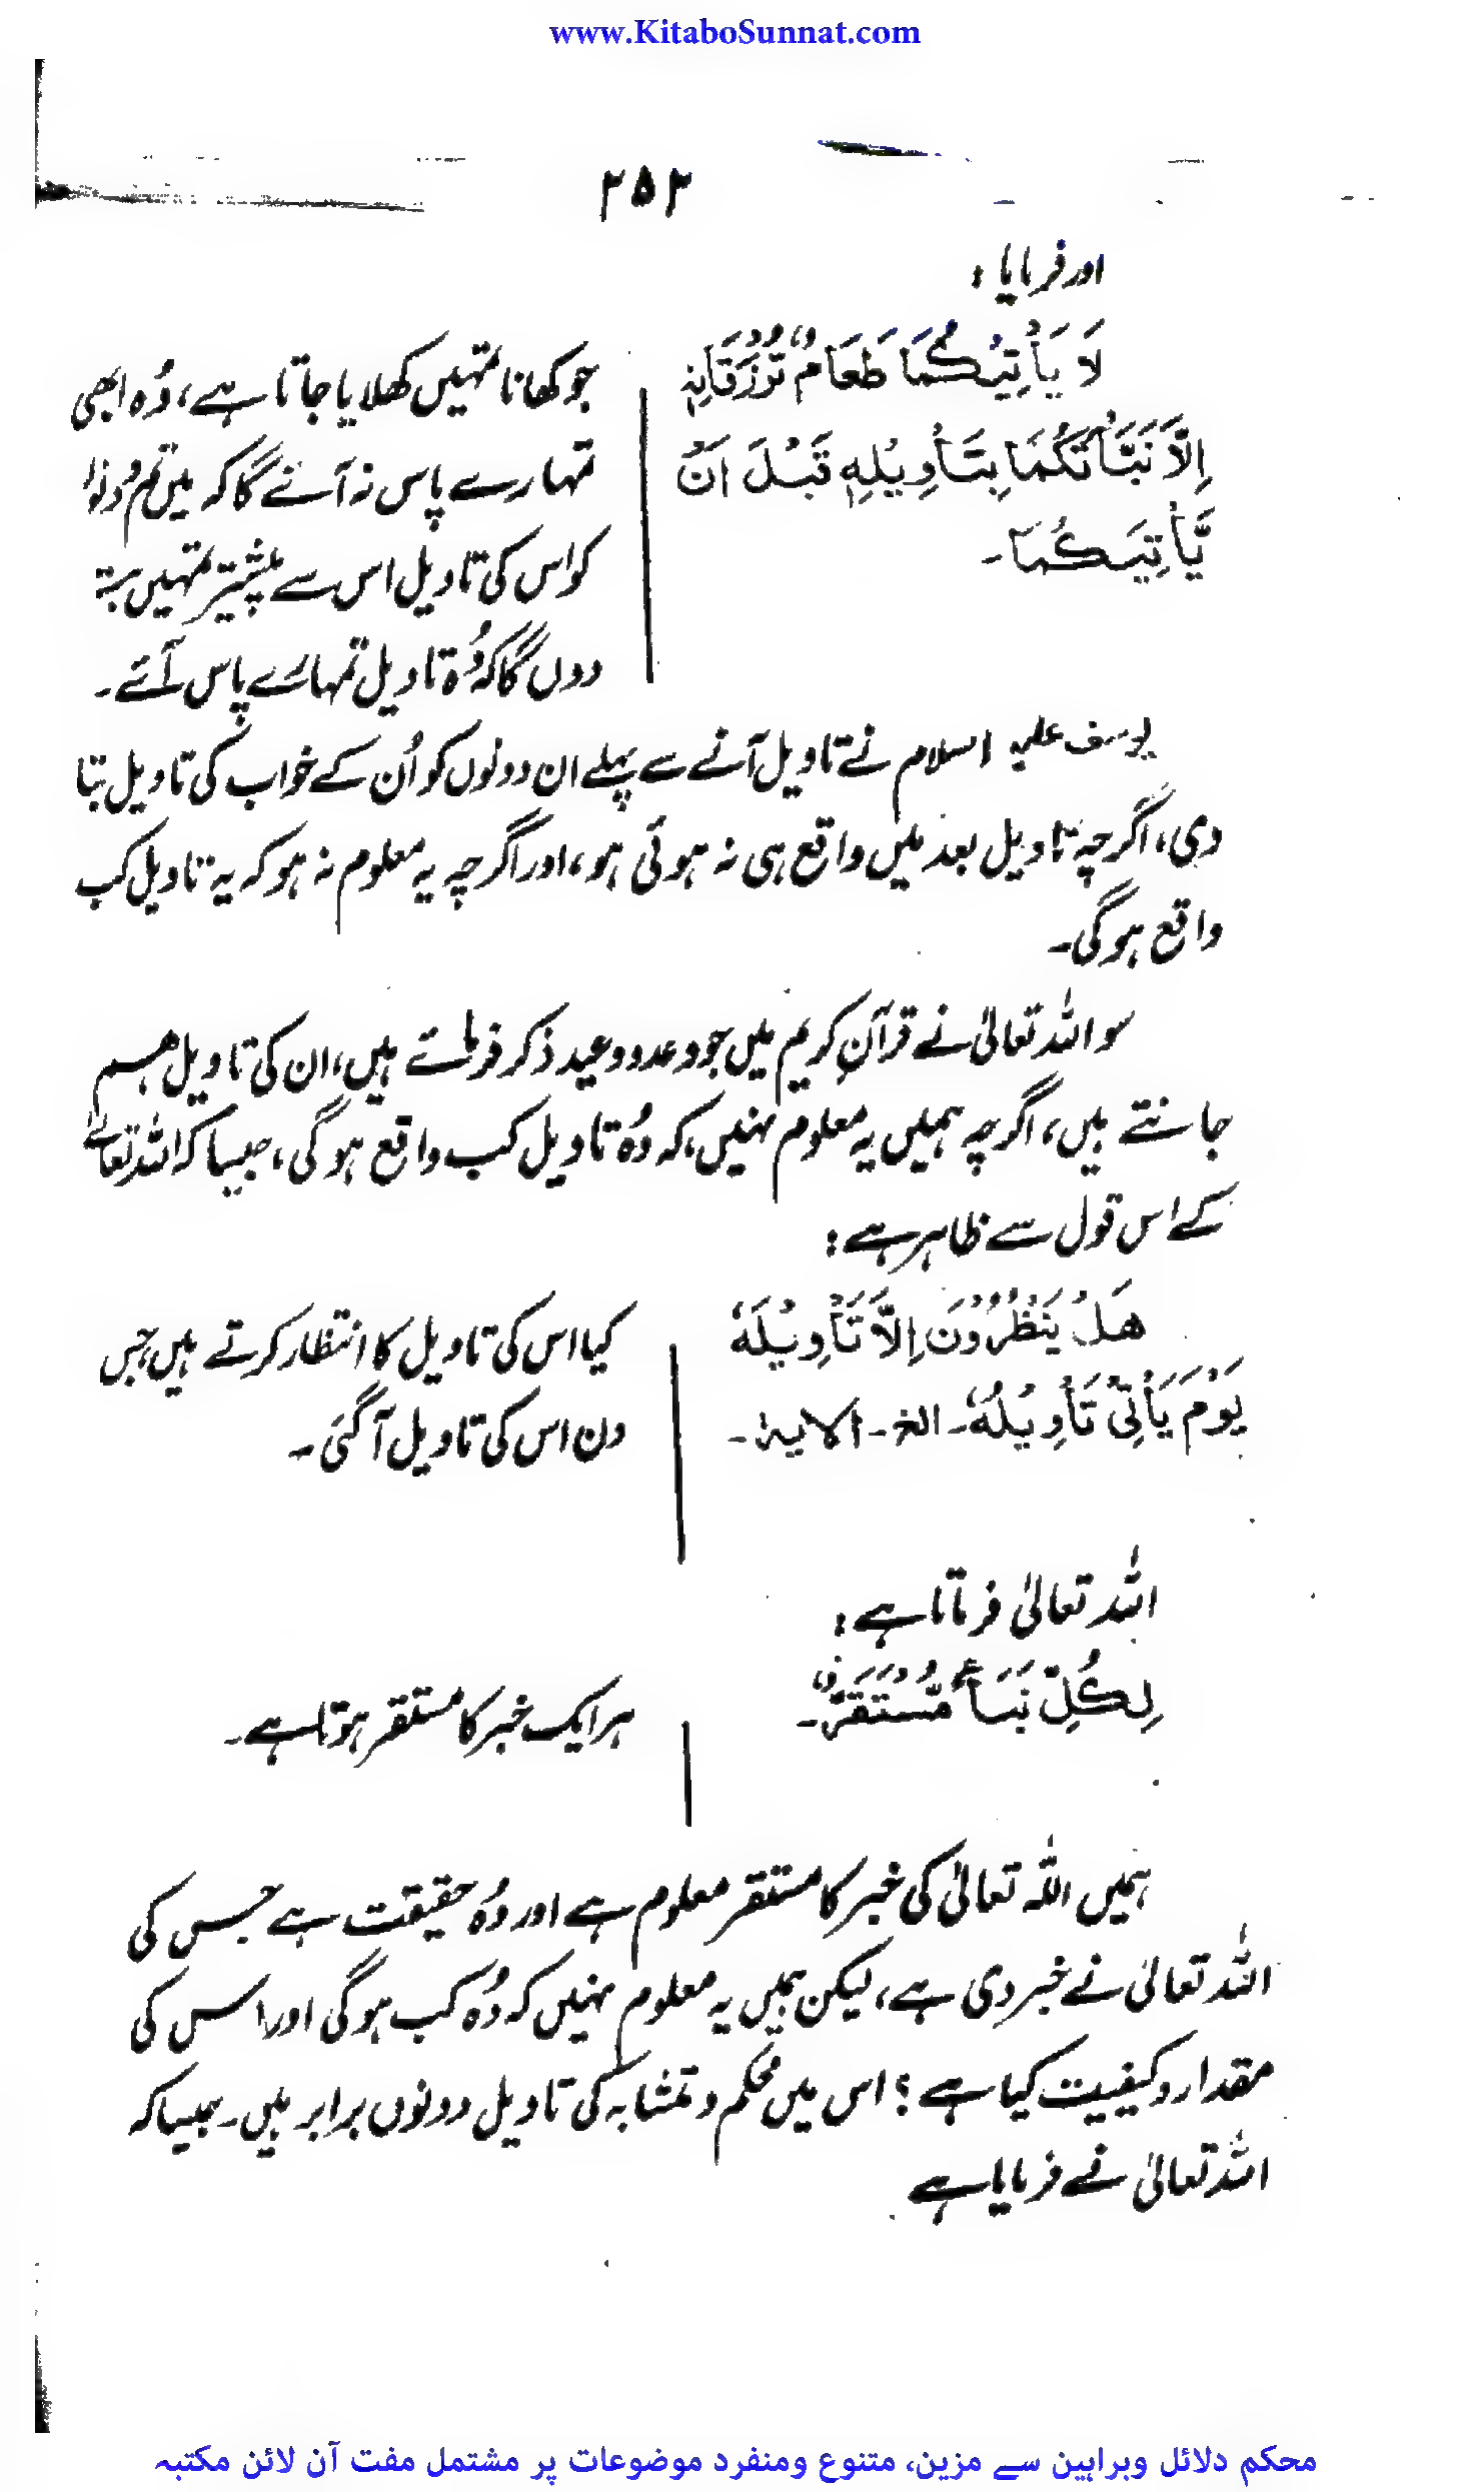 www.KitaboSunnat.com
۲۵۲
اور فرمایا :
لَا یَأْتِیْکُمَا طَعَامٌ تُرْزَقَانِہٖ
اِلَّا نَبَّأْتُکُمَا بِتَأْوِیْلِہٖ قَبْلَ اَنْ
یَّأْتِیَکُمَا۔
جو کھانا تمہیں کھلایا جاتا ہے، وُہ ابھی
تمہارے پاس نہ آنے گا کہ میں تم دونوں
کو اس کی تاویل اس سے پیشتر تمہیں بتہ
دوں گا کہ وُہ تاویل تمہارے پاس آئے۔
یوسف علیہ السلام نے تاویل آنے سے پہلے ان دونوں کو اُن کے خواب کی تاویل بتا
دی، اگرچہ تاویل بعد میں واقع ہی نہ ہوئی ہو، اور اگرچہ یہ معلوم نہ ہو کہ یہ تاویل کب
واقع ہوگی۔
سو اللہ تعالیٰ نے قرآنِ کریم میں جو وعدو وعید ذکر فرمائے ہیں، ان کی تاویل ہم
جانتے ہیں، اگرچہ ہمیں یہ معلوم نہیں، کہ وُہ تاویل کب واقع ہوگی، جیسا کہ اللہ تعالےٰ
کے اس قول سے ظاہر ہے :
ھَلْ یَنْظُرُوْنَ اِلَّا تَأْوِیْلَہٗ
یَوْمَ یَأْتِیْ تَأْوِیْلُہٗ۔ الخ۔ الایۃ۔
کیا اس کی تاویل کا انتظار کرتے ہیں، جس
دن اس کی تاویل آگئی۔
اللہ تعالیٰ فرماتا ہے :
لِکُلِّ نَبَاٍ مُّسْتَقَرٌّ۔
ہر ایک خبر کا مستقر ہوتا ہے۔
ہمیں اللہ تعالیٰ کی خبر کا مستقر معلوم ہے اور وُہ حقیقت ہے جس کی
اللہ تعالیٰ نے خبر دی ہے، لیکن ہمیں یہ معلوم نہیں کہ وُہ کب ہوگی اور اس کی
مقدار و کیفیت کیا ہے ؟ اس میں محکم و متشابہ کی تاویل دونوں برابر ہیں۔ جیسا کہ
اللہ تعالیٰ نے فرمایا ہے
محکم دلائل وبراہین سے مزین، متنوع ومنفرد موضوعات پر مشتمل مفت آن لائن مکتبہ